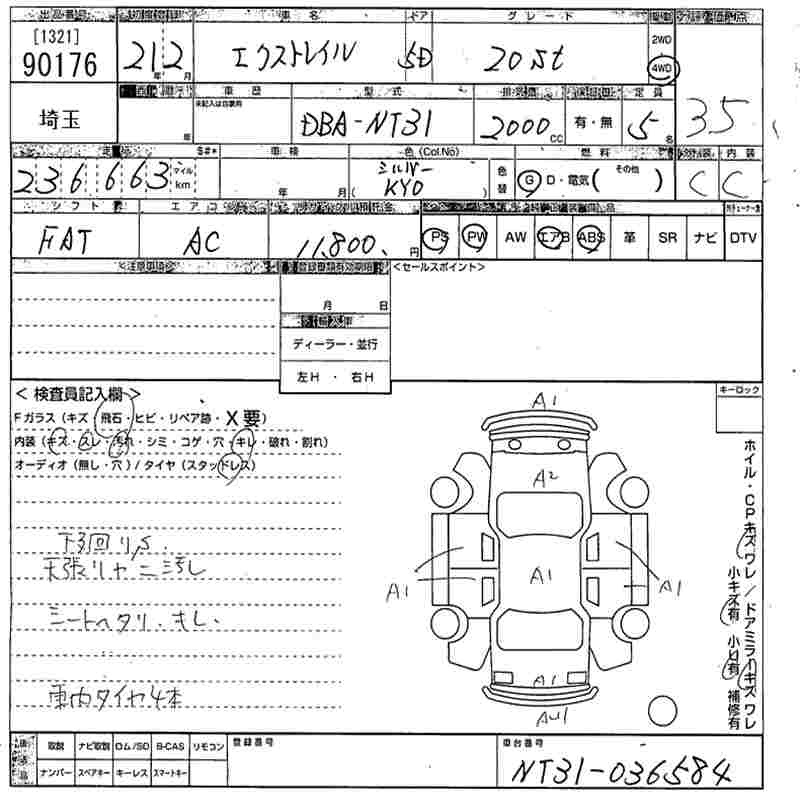 出品番号 初度登録 車名 ドア グレード 駆動 評価点
[1321]
90176 21年 2月 エクストレイル 5D 20St 2WD 4WD 3.5
埼玉 車歴 型式 排気量 定員
未記入は自家用
年 DBA-NT31 2000CC 有・無 5名
車検 色(Col.No) 燃料 内装
236,663 マイル km 年 月 シルバー (KY0) 色替 G D・電気( その他 ) C C
シフト エアコン
FAT AC 11,800.円 PS PW AW エアB ABS 革 SR ナビ DTV
<注意事項> 登録書類有効期限 <セールスポイント>
月 日
ディーラー・並行
左H ・ 右H
<検査員記入欄> キーロック
Fガラス(キズ・飛石・ヒビ・リペア跡・X要)
内装(キズ・スレ・汚れ・シミ・コゲ・穴・キレ・破れ・割れ)
オーディオ(無し・穴)/タイヤ(スタッドレス)
下回りS
天張りヤニ汚レ
シートヘタリ・キレ.
車内タイヤ4本
A1
A2
A1 A1 A1
A1
AU1
ホイル・CPキズワレ/ドアミラーキズワレ
小キズ有 小凹有 補修有
取説 ナビ取説 ロム/SD B-CAS リモコン 登録番号 車台番号
ナンバー スペアキー キーレス スマートキー NT31-036584